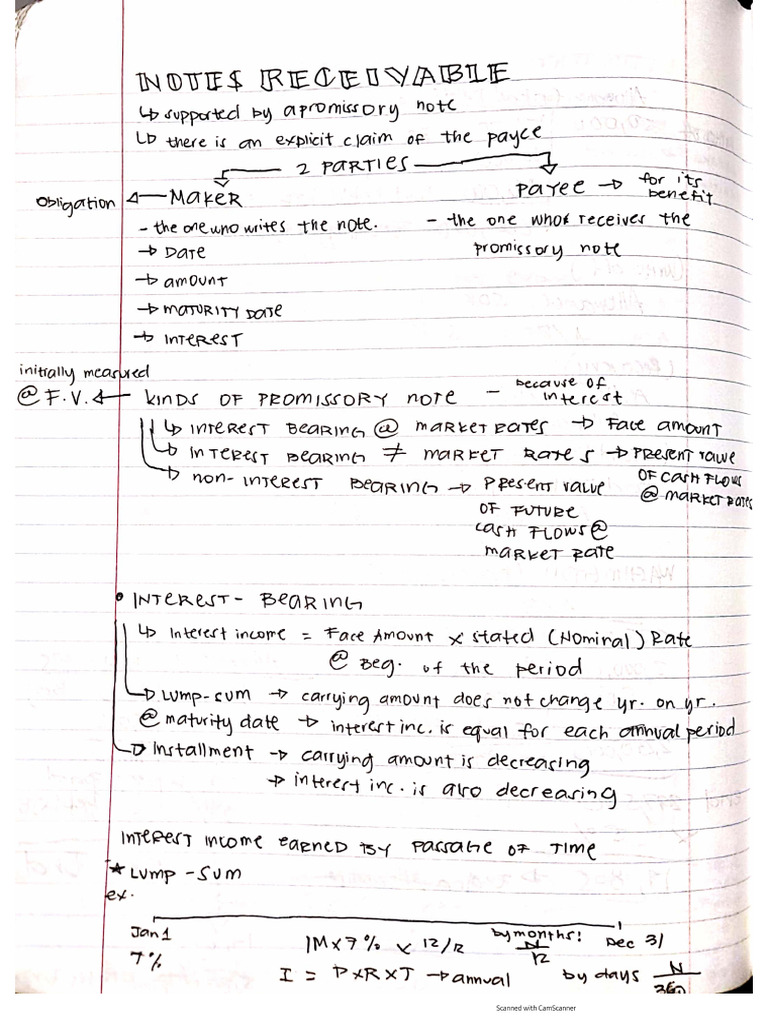 NOTES RECEIVABLE
↳ supported by a promissory note
↳ there is an explicit claim of the payee
2 PARTIES
Obligation ← MAKER
PAYEE → for its benefit
- the one who writes the note.
- the one who receives the promissory note
→ DATE
→ amount
→ MATURITY DATE
→ INTEREST
initially measured
@ F.V. ← KINDS OF PROMISSORY NOTE - because of interest
↳ INTEREST BEARING @ MARKET RATES → FACE AMOUNT
↳ INTEREST BEARING ≠ MARKET RATES → PRESENT VALUE
OF CASH FLOWS
@ MARKET RATES
→ NON-INTEREST BEARING → PRESENT VALUE
OF FUTURE
CASH FLOWS @
MARKET RATE
• INTEREST - BEARING
↳ Interest income = Face Amount x stated (Nominal) Rate
@ Beg. of the period
→ Lump-sum → carrying amount does not change yr. on yr.
@ maturity date → interest inc. is equal for each annual period
→ Installment → carrying amount is decreasing
→ interest inc. is also decreasing
INTEREST INCOME EARNED BY PASSAGE OF TIME
* LUMP - SUM
ex.
Jan 1
7%
1M x 7% x 12/12
by months! N/12
Dec 31
I = P x R x T → annual
by days N/360
Scanned with CamScanner